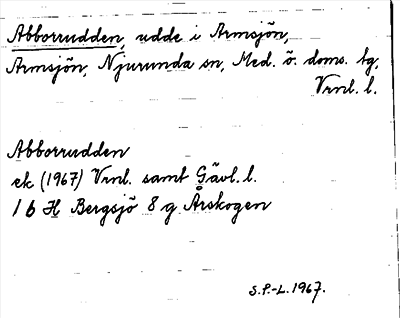 Abborrudden, udde i Armsjön,
Armsjön, Njurunda sn, Med. ö. doms. tg,
Vrnl. l.
Abborrudden
ek (1967) Vrnl. samt Gävl. l.
16 H Bergsjö 8 g Årskogen
S.P.-L. 1967.